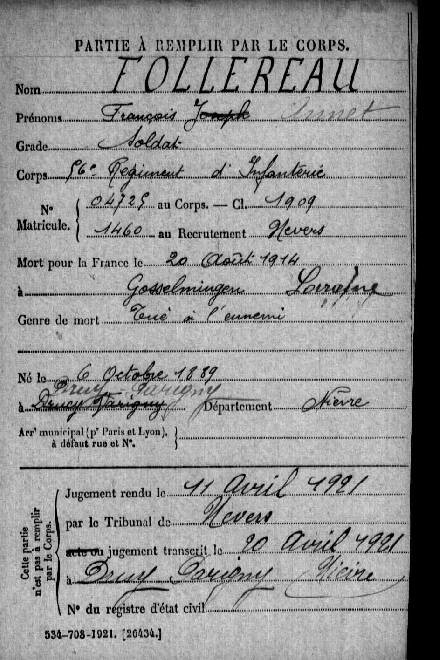 PARTIE À REMPLIR PAR LE CORPS.
Nom FOLLEREAU
Prénoms François Joseph
Grade Soldat
Corps 56e Régiment d'Infanterie
N° Matricule. { 04725 au Corps. — Cl. 1909
1460 au Recrutement Nevers
Mort pour la France le 20 Août 1914
à Gosselmingen Lorraine
Genre de mort Tué à l'ennemi
Né le 6 Octobre 1889
Savigny
à Département Nièvre
Arrt municipal (pr Paris et Lyon), à défaut rue et N°.
Cette partie n'est pas à remplir par le Corps.
Jugement rendu le 11 Avril 1921
par le Tribunal de Nevers
acte ou jugement transcrit le 20 Avril 1921
à Nièvre
N° du registre d'état civil
534-708-1921. [26434.]